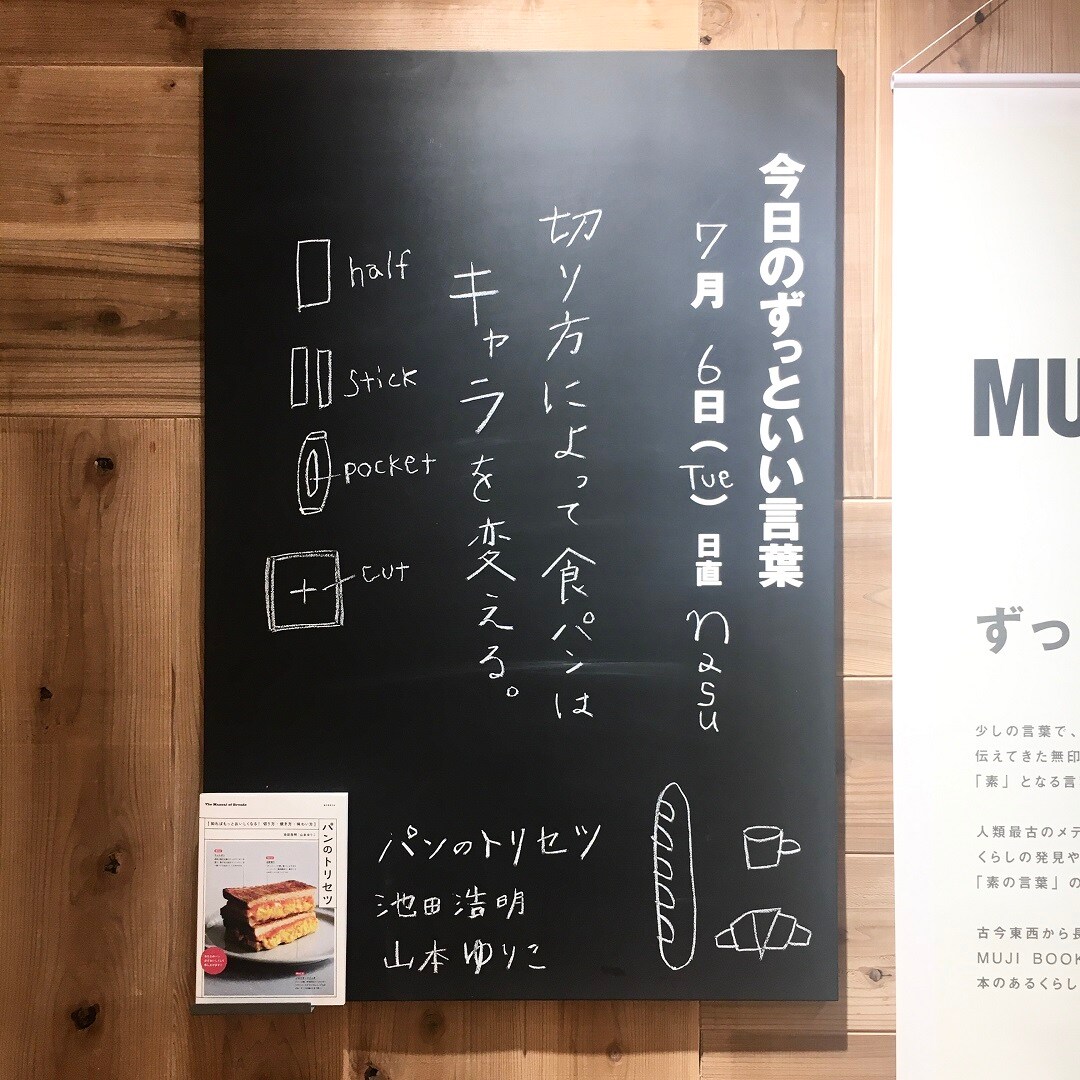 今日のずっといい言葉
7月 6日(Tue) 日直 nasu
切り方によって食パンは
キャラを変える。
half
stick
pocket
cut
パンのトリセツ
池田浩明
山本ゆりこ
パンのトリセツ
MU
ずっ
少しの言葉で、
伝えてきた無印
「素」となる言
人類最古のメデ
くらしの発見や
「素の言葉」の
古今東西から長
MUJI BOOK
本のあるくらし